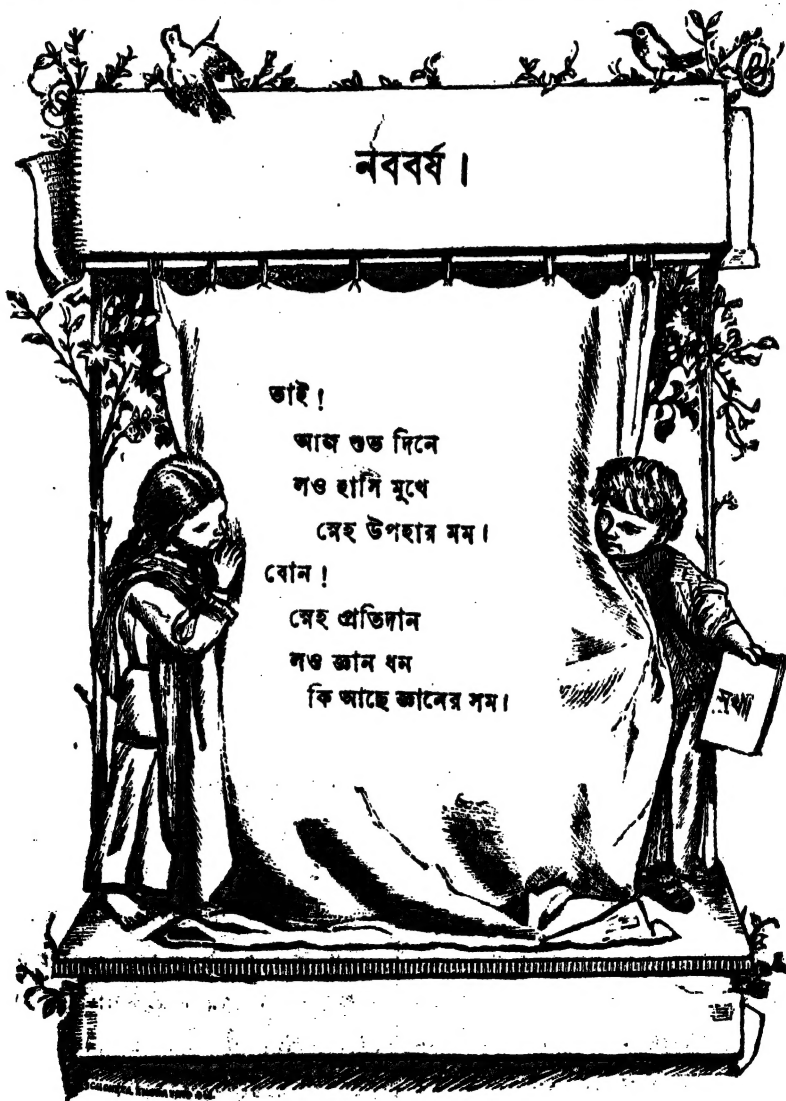 নববর্ষ।
ভাই!
আজ শুভ দিনে
লও হাসি মুখে
স্নেহ উপহার মম।
বোন!
স্নেহ প্রতিদান
লও জ্ঞান ধন
কি আছে জ্ঞানের সম।
সখা